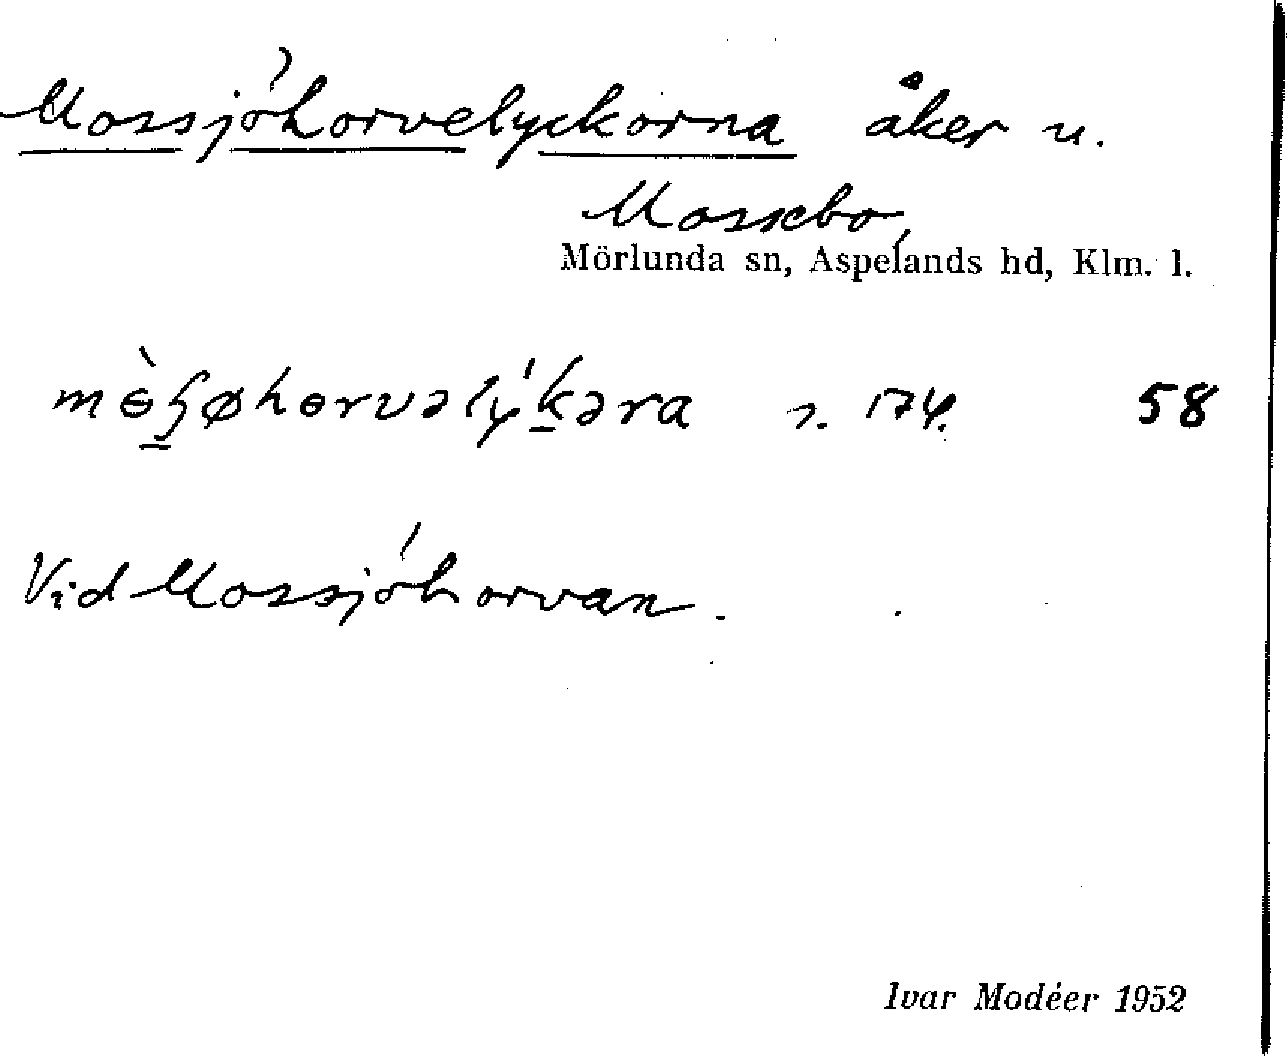 Mossjöhorvelyckorna åker u.
Mossebo,
Mörlunda sn, Aspelands hd, Klm. l.
mɵ̀ʂøhɵrvəlýkəra s. 174. 58
Vid Mossjöhorvan.
Ivar Modéer 1952